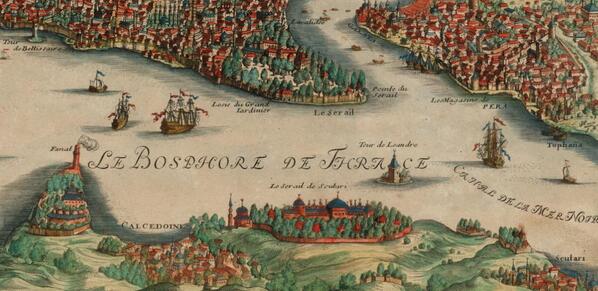 Lavalide
Tour de Bellissaire
Pointe du
Serail
Logis du Grand
Iardinier
Le Serail
Les Magasins de
PERA
Tophana
Fanal
Tour de Leandre
LE BOSPHORE DE THRACE
CANAL DE LA MER NOIR
Le Serail de Scutari
CALCEDOINE
Scutari